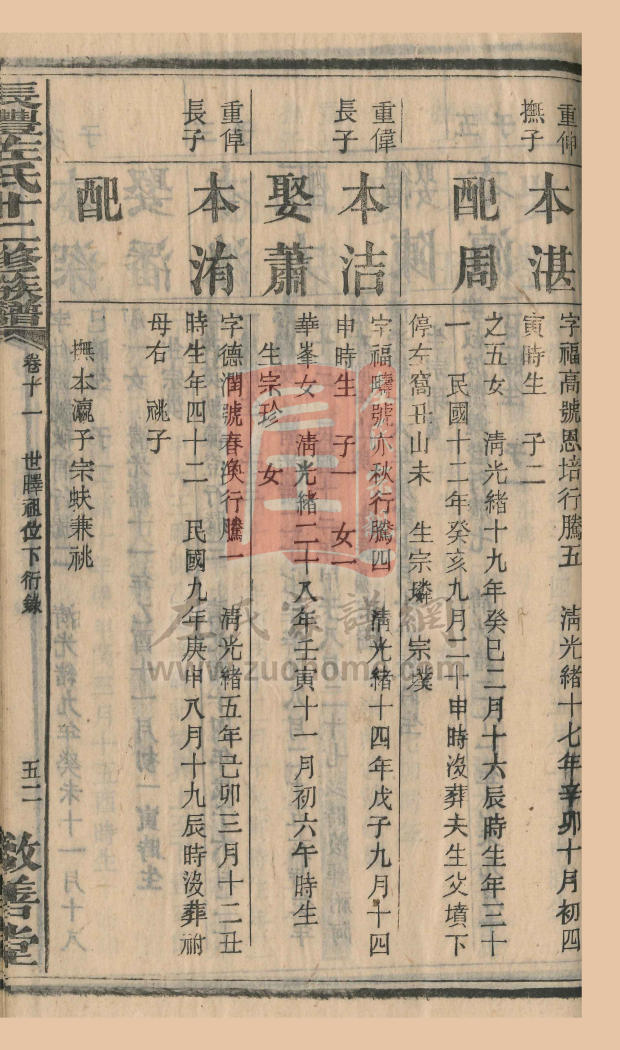 重伸
撫子
本湛
字福高號恩培行騰五　淸光緒十七年辛卯十月初四
寅時生　子二
配周
之五女　淸光緒十九年癸巳二月十六辰時生年三十
一　民國十二年癸亥九月二十申時沒葬夫生父墳下
停左窩丑山未　生宗璘　宗濮
重偉
長子
本洁
字福疇號亦秋行騰四　淸光緒十四年戊子九月十四
申時生　子一　女一
娶蕭
華峯女　淸光緒二十八年壬寅十一月初六午時生
生宗珍　女
重倬
長子
本洧
字德潤號春渙行騰一　淸光緒五年己卯三月十二丑
時生年四十二　民國九年庚申八月十九辰時沒葬祔
母右　祧子
配
撫本瀛子宗蚨兼祧
長澧左氏廿二修族譜
卷十一　世驛祖位下衍錄
五二
敦善堂
左氏家譜網
www.zuchome.com